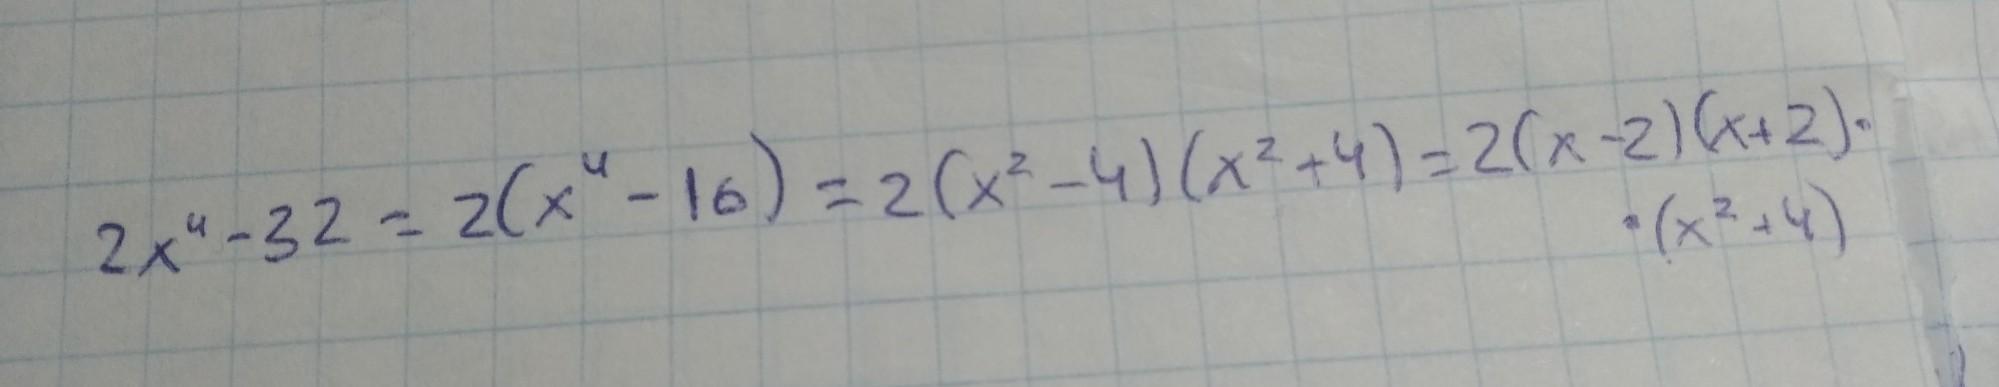 2x⁴-32=2(x⁴-16)=2(x²-4)(x²+4)=2(x-2)(x+2)·
·(x²+4)